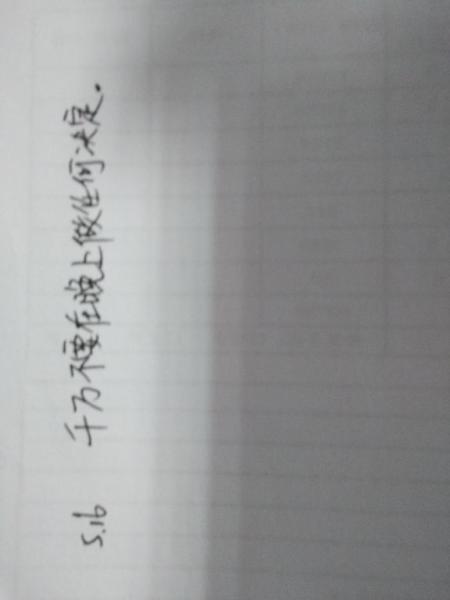 5.16 千万不要在晚上做任何决定.